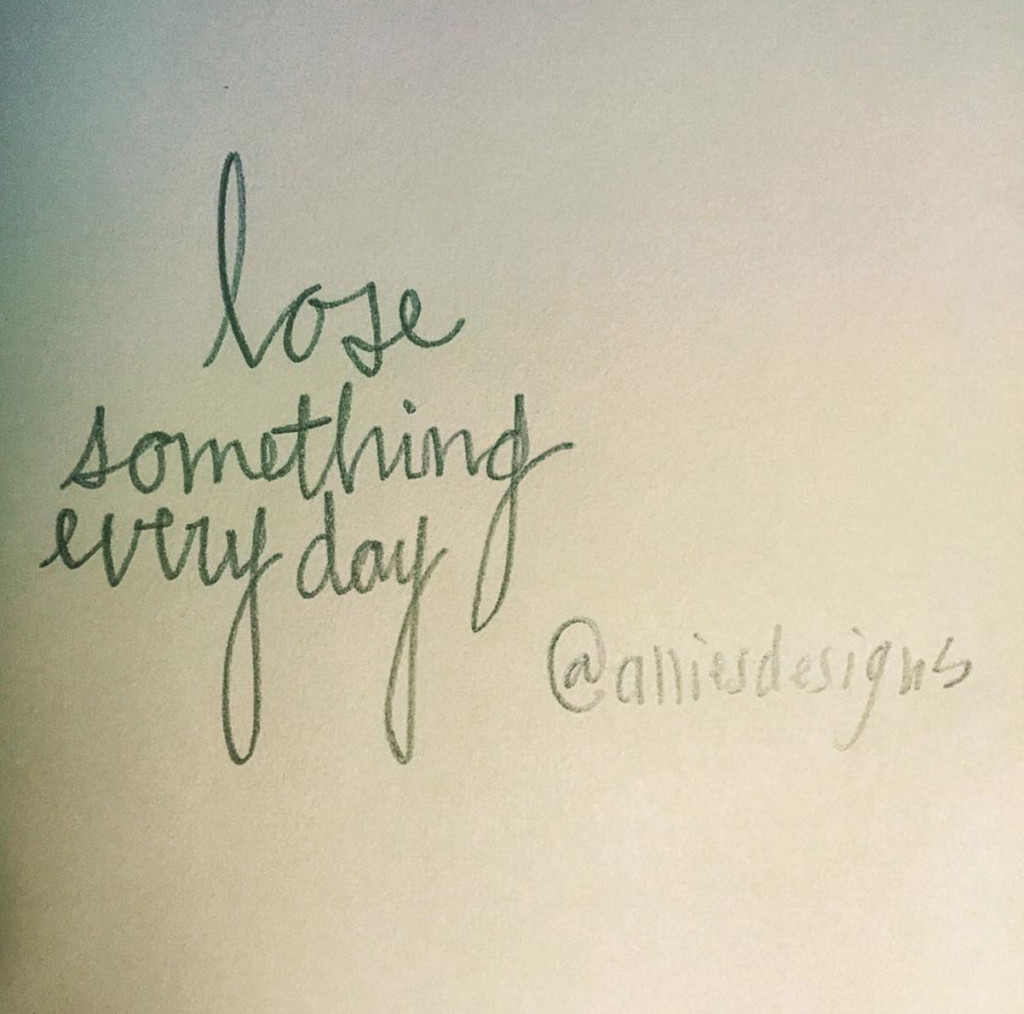 lose
something
every day
@alliesdesigns